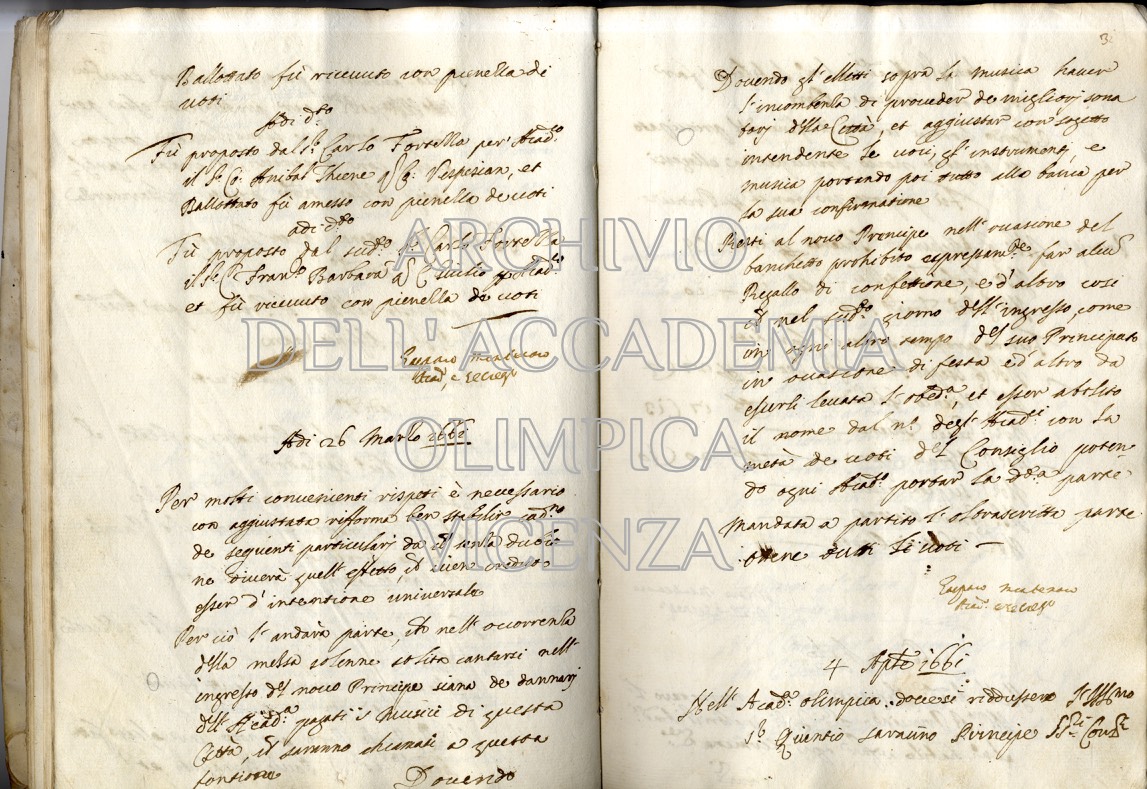 Ballottato fù ricevuto con pienella di
voti
Adi d.to
Fù proposto dal S.r Carlo Tortella per Acad.co
il S.r Co: Anibal Thiene q. Co: Vespesian, et
Ballottato fù amesso con pienella de voti
adi d.do
Fù proposto dal sud.o S.r Carlo Tortella
il S.r Fran.co Barbarà
et fù ricevuto con pienella de voti
Gasparo
Acad.co e Secreg.o
Adi 26 Marzo 1661
Per molti convenienti rispeti è necessario
con aggiustata rifforma ben stabilir
de seguenti particolari da senza dubio
ne diverà quell' effetto, vien creduto
esser d' intentione universale
Per ciò l' andarà parte, che nell' occorrenza
della messa solenne solita cantarsi nell'
ingresso del novo Principe siano de dannari
dell' Acad.a pagati i Musici di questa
Città, che saranno chiamati a questa
fontione
Dovendo
3
Dovendo gl' elletti sopra la musica haver
l' incombenza di proveder de migliori sona
tori della Città, et aggiustar con sogetto
intendente le voci, gl' instrumenti, e
musica portando poi tutto alla banca per
la sua confirmatione
Resti al novo Principe nell' ocasione del
banchetto prohibito espressam.te far alcun
Regallo di confettione, ed' altro cosi
nel sud.o giorno dell' ingresso, come
in ogni altro tempo del suo Principato
in ocasione di festa ed' altro da
esserli levata l' obed.a, et esser abolito
il nome dal n.o degl' Acad.ci con la
metà de voti del Consiglio poten
do ogni Acad.co portar la d.a parte
Mandata a partito l' oltrascritta parte
ottene tutti li voti
Gasparo
Acad.co e Secreg.o
4 Aple 1661
Nell' Acad.a olimpica dovesi riddussero l' Ill.mo
S.r Quintio Saraceno Principe
ARCHIVIO
DELL'ACCADEMIA
OLIMPICA
VICENZA